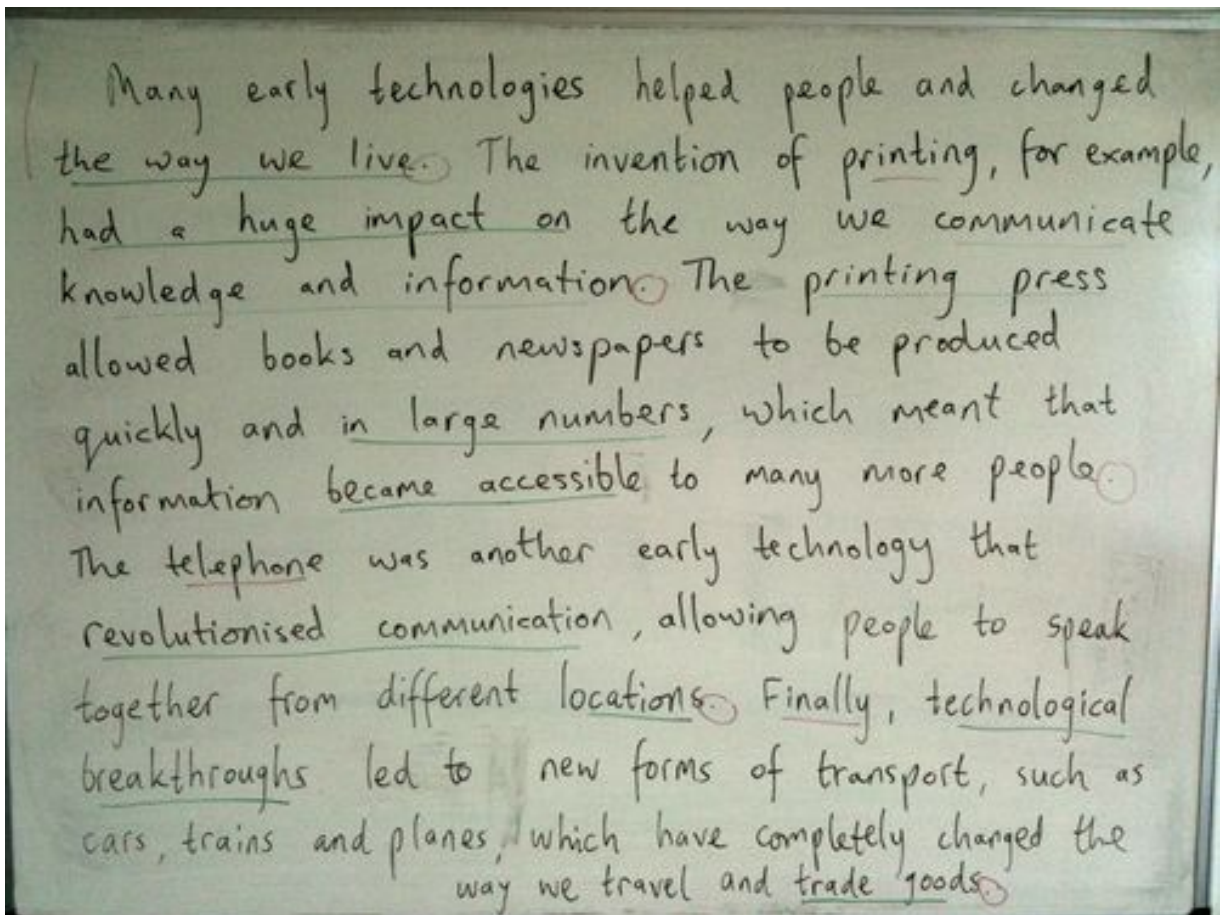 Many early technologies helped people and changed
the way we live. The invention of printing, for example,
had a huge impact on the way we communicate
knowledge and information. The printing press
allowed books and newspapers to be produced
quickly and in large numbers, which meant that
information became accessible to many more people.
The telephone was another early technology that
revolutionised communication, allowing people to speak
together from different locations. Finally, technological
breakthroughs led to new forms of transport, such as
cars, trains and planes, which have completely changed the
way we travel and trade goods.